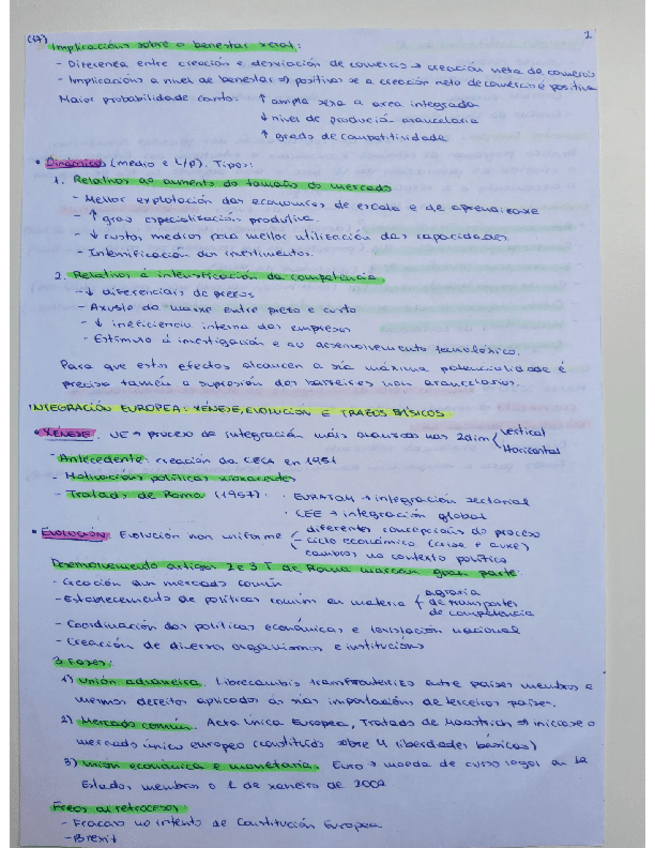 (17) Implicacións sobre o benestar xeral: 1
- Diferenza entre creación e desviación de comercio → creación neta de comercio
- Implicacións a nivel de benestar ⇒ positivas se a creación neta de comercio é positiva
Maior probabilidade canto: ↑ ampla sexa a area integrada
↓ nivel de protección arancelaria
↑ grado de competitividade
• Dinámicos (medio e L/p). Tipos:
1. Relativos ao aumento do tamaño do mercado
- Mellor explotación das economías de escala e de aprendizaxe
- ↑ grao especialización produtiva.
- ↓ custos medios pola mellor utilización das capacidades
- Intensificación dos investimentos.
2. Relativos á intensificación da competencia
- ↓ diferenciais de prezos
- Axuste da marxe entre prezo e custo
- ↓ ineficiencia interna das empresas
- Estímulo á investigación e ao desenvolvemento tecnolóxico.
Para que estos efectos alcancen a súa máxima potencialidade é
preciso tamén a supresión das barreiras non arancelarias.
INTEGRACIÓN EUROPEA: XÉNESE, EVOLUCIÓN E TRAZOS BÁSICOS
• XÉNESE. UE → proceso de integración máis avanzado nas 2 dim { vertical
Horizontal
- Antecedente: creación da CECA en 1951
- Motivacións políticas
- Tratados de Roma (1957): · EURATOM → integración sectorial
· CEE → integración global
• Evolución. Evolución non uniforme { diferentes concepcións do proceso
- ciclo económico (crise e auxe)
cambios no contexto político
Desenvolvemento artigos 2 e 3 T de Roma marcan gran parte:
- Creación dun mercado común
- Establecemento de políticas común en materia { agraria
de transportes
de competencia
- Coordinación das políticas económicas e lexislación nacional
- Creación de diversos organismos e institucións
3 Fases:
1) Unión aduaneira. Librecambio transfronteirizo entre países membros e
mesmos dereitos aplicados ás súas importacións de terceiros países.
2) Mercado común. Acta Única Europea, Tratado de Maastrich ⇒ iniciase o
mercado único europeo (constituído sobre 4 liberdades básicas)
3) Unión económica e monetaria. Euro → moeda de curso legal en 12
Estados membros o 1 de xaneiro de 2002.
Freos ou retrocesos
- Fracaso no intento de Constitución Europea
- Brexit